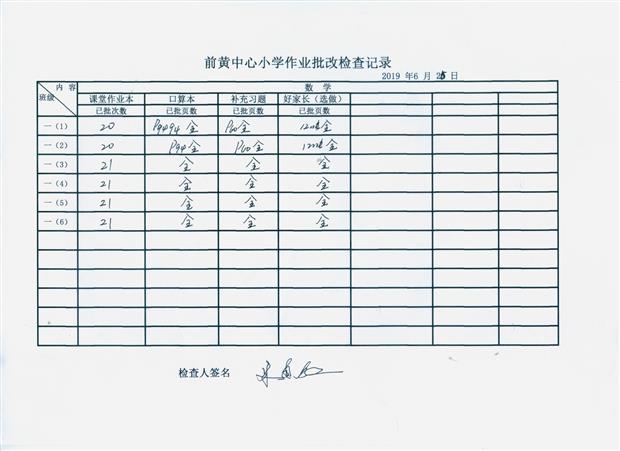 前黄中心小学作业批改检查记录
2019 年6 月 25 日
内 容 数 学
班级 课堂作业本 口算本 补充习题 好家长（选做）
已批次数 已批页数 已批页数 已批页数
一（1） 20 全 P60全 全
一（2） 20 P94全 P60全 全
一（3） 21 全 全 全
一（4） 21 全 全 全
一（5） 21 全 全 全
一（6） 21 全 全 全
检查人签名